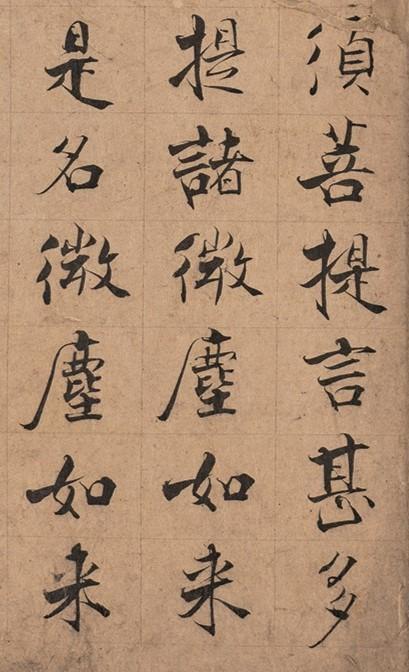 須菩提言甚多
提諸微塵如来
是名微塵如来